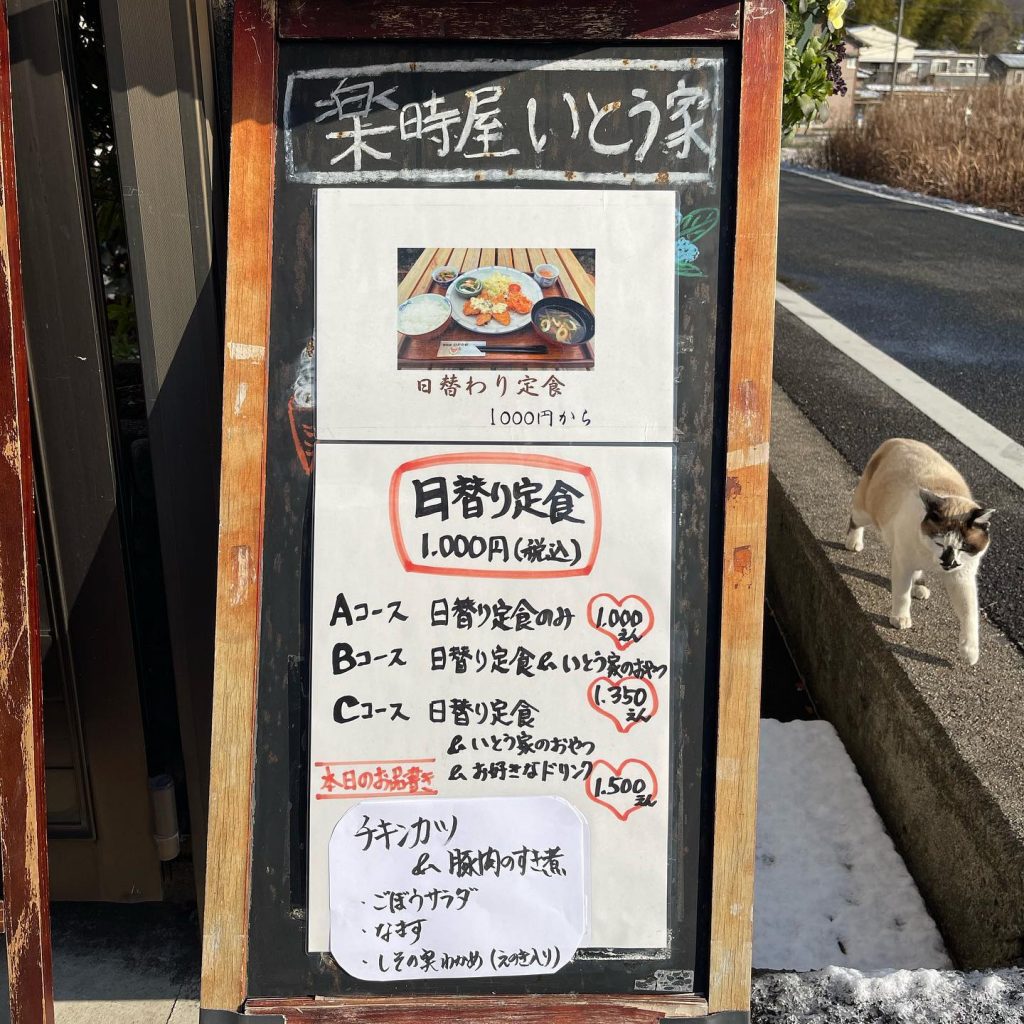 楽時屋 いとう家
日替わり定食
1000円から
日替り定食
1.000円(税込)
Aコース 日替り定食のみ 1.000えん
Bコース 日替り定食&いとう家のおやつ
1.350えん
Cコース 日替り定食
&いとう家のおやつ
&お好きなドリンク
1.500えん
本日のお品書き
チキンカツ
& 豚肉のすき煮
・ごぼうサラダ
・なます
・しその実わかめ(えのき入り)